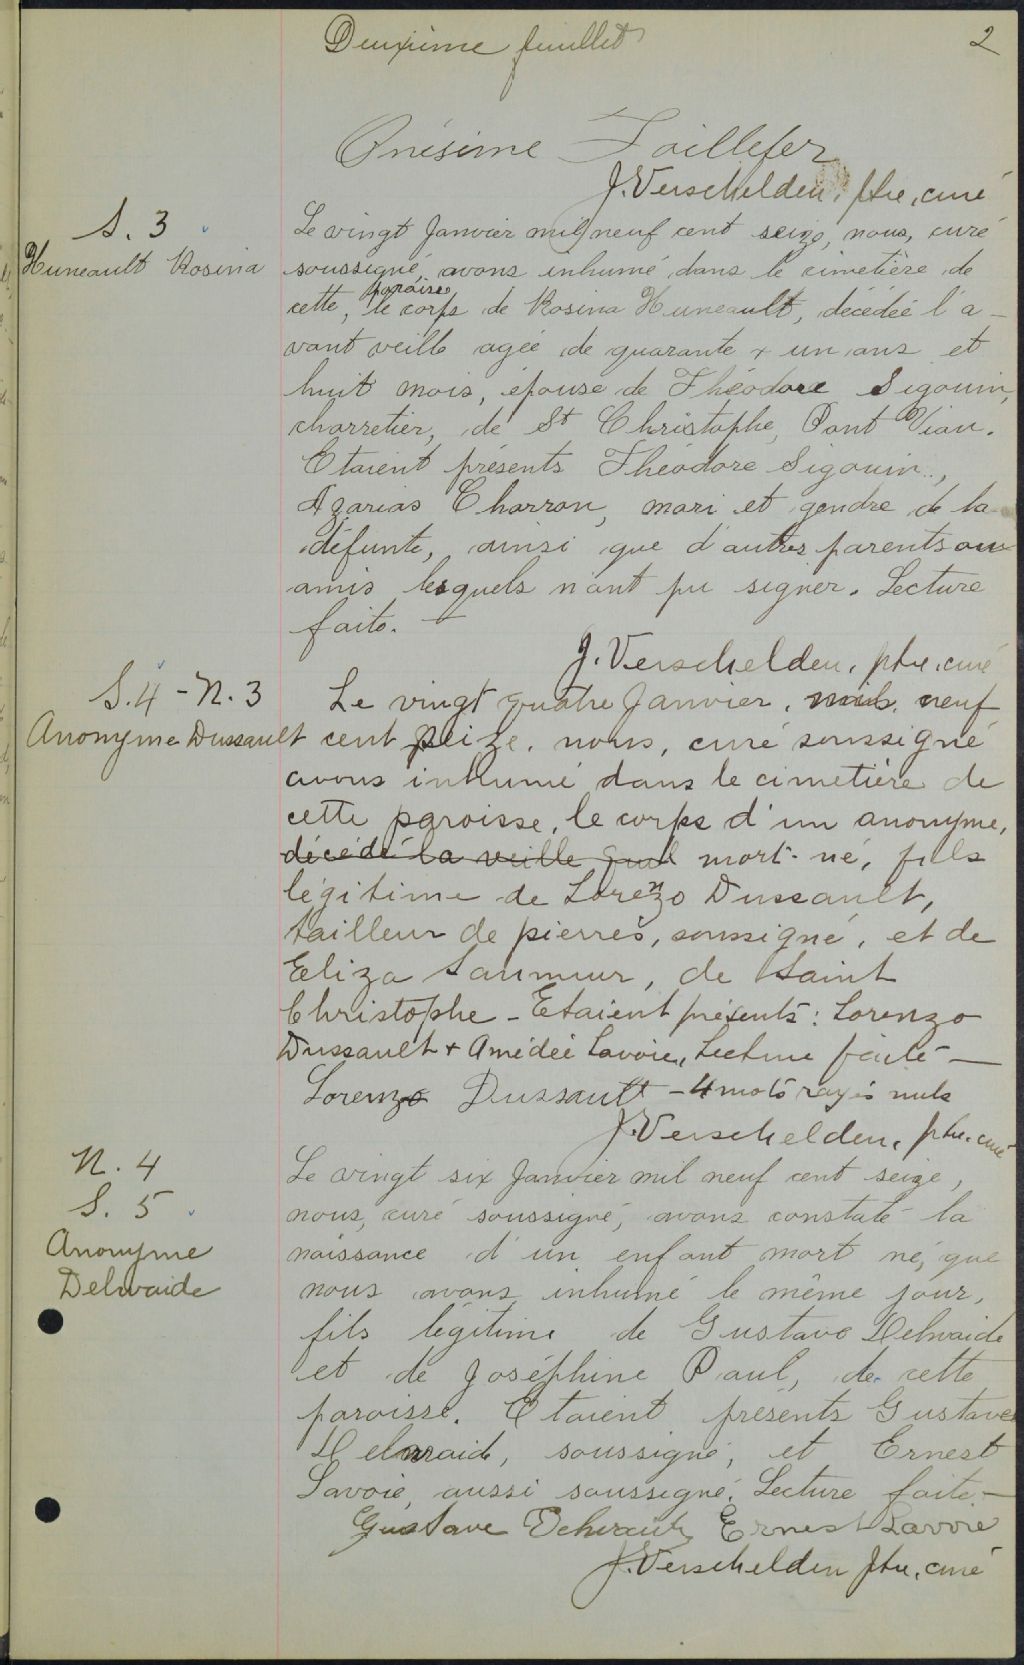 Deuxième feuillet
2
Onésime Taillefer
J. Verschelden, ptre, curé
S. 3
Huneault Rosina
Le vingt Janvier mil neuf cent seize, nous, curé
soussigné, avons inhumé dans le cimetière de
paroisse
cette, le corps de Rosina Huneault, décédée l'a-
vant veille agée de quarante + un ans et
huit mois, épouse de Théodore Sigouin,
charretier, de St Christophe, Pont Viau.
Etaient présents Théodore Sigouin,
Azarias Charron, mari et gendre de la
défunte, ainsi que d'autres parents ou
amis lesquels n'ont pu signer. Lecture
faite. —
J. Verschelden, ptre, curé
S. 4 - N. 3
Anonyme Dussault
Le vingt quatre Janvier, mil neuf
cent seize, nous, curé soussigné
avons inhumé dans le cimetière de
cette paroisse, le corps d'un anonyme,
décédé la veille mort-né, fils
légitime de Lorenzo Dussault,
tailleur de pierres, soussigné, et de
Eliza Saumur, de Saint
Christophe - Etaient présents: Lorenzo
Dussault + Amédée Lavoie, Lecture faite —
Lorenzo Dussault - 4 mots rayés nuls
J. Verschelden, ptre. curé
N. 4
S. 5
Anonyme
Delwaide
Le vingt six Janvier mil neuf cent seize,
nous, curé soussigné, avons constaté la
naissance d'un enfant mort né, que
nous avons inhumé le même jour,
fils légitime de Gustave Delwaide
et de Joséphine Paul, de cette
paroisse. Etaient présents Gustave
Delwaide, soussigné, et Ernest
Lavoie, aussi soussigné. Lecture faite. —
Gustave Ernest Lavoie
J. Verschelden ptre, curé